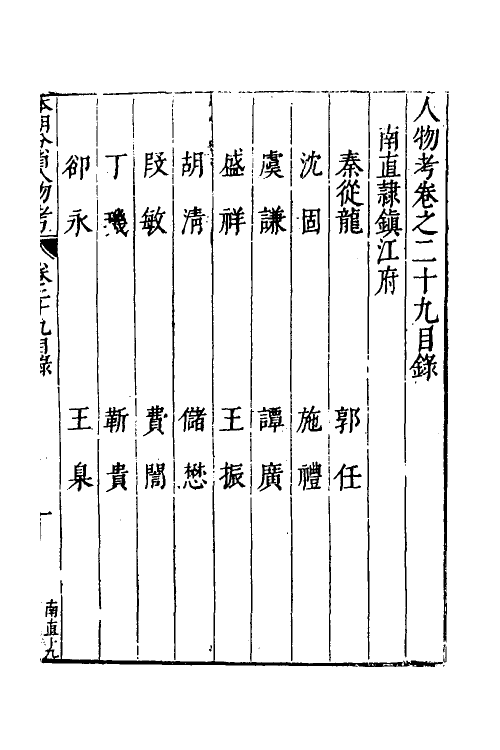 人物考卷之二十九目錄
南直隷鎮江府
秦從龍 郭任
沈固 施禮
虞謙 譚廣
盛祥 王振
胡濙 儲懋
段敏 費誾
丁璣 靳貴
郤永 王臬
本朝分省人物考 卷二十九目錄 一 南直十九